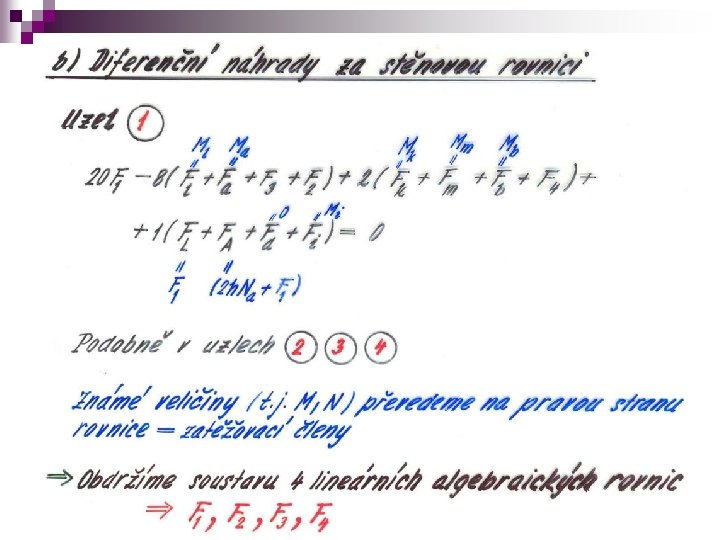 b) Diferenční náhrady za stěnovou rovnici
Uzel 1
M_l M_a M_k M_m M_b
20F_1 − 8(F_l + F_a + F_3 + F_2) + 2(F_k + F_m + F_b + F_4) +
0 M_i
+ 1(F_L + F_A + F_a + F_i) = 0
F_1 (2hN_a + F_1)
Podobně v uzlech 2 3 4
Známé veličiny (t.j. M, N) převedeme na pravou stranu
rovnice = zatěžovací členy
⇒ Obdržíme soustavu 4 lineárních algebraických rovnic
⇒ F_1, F_2, F_3, F_4